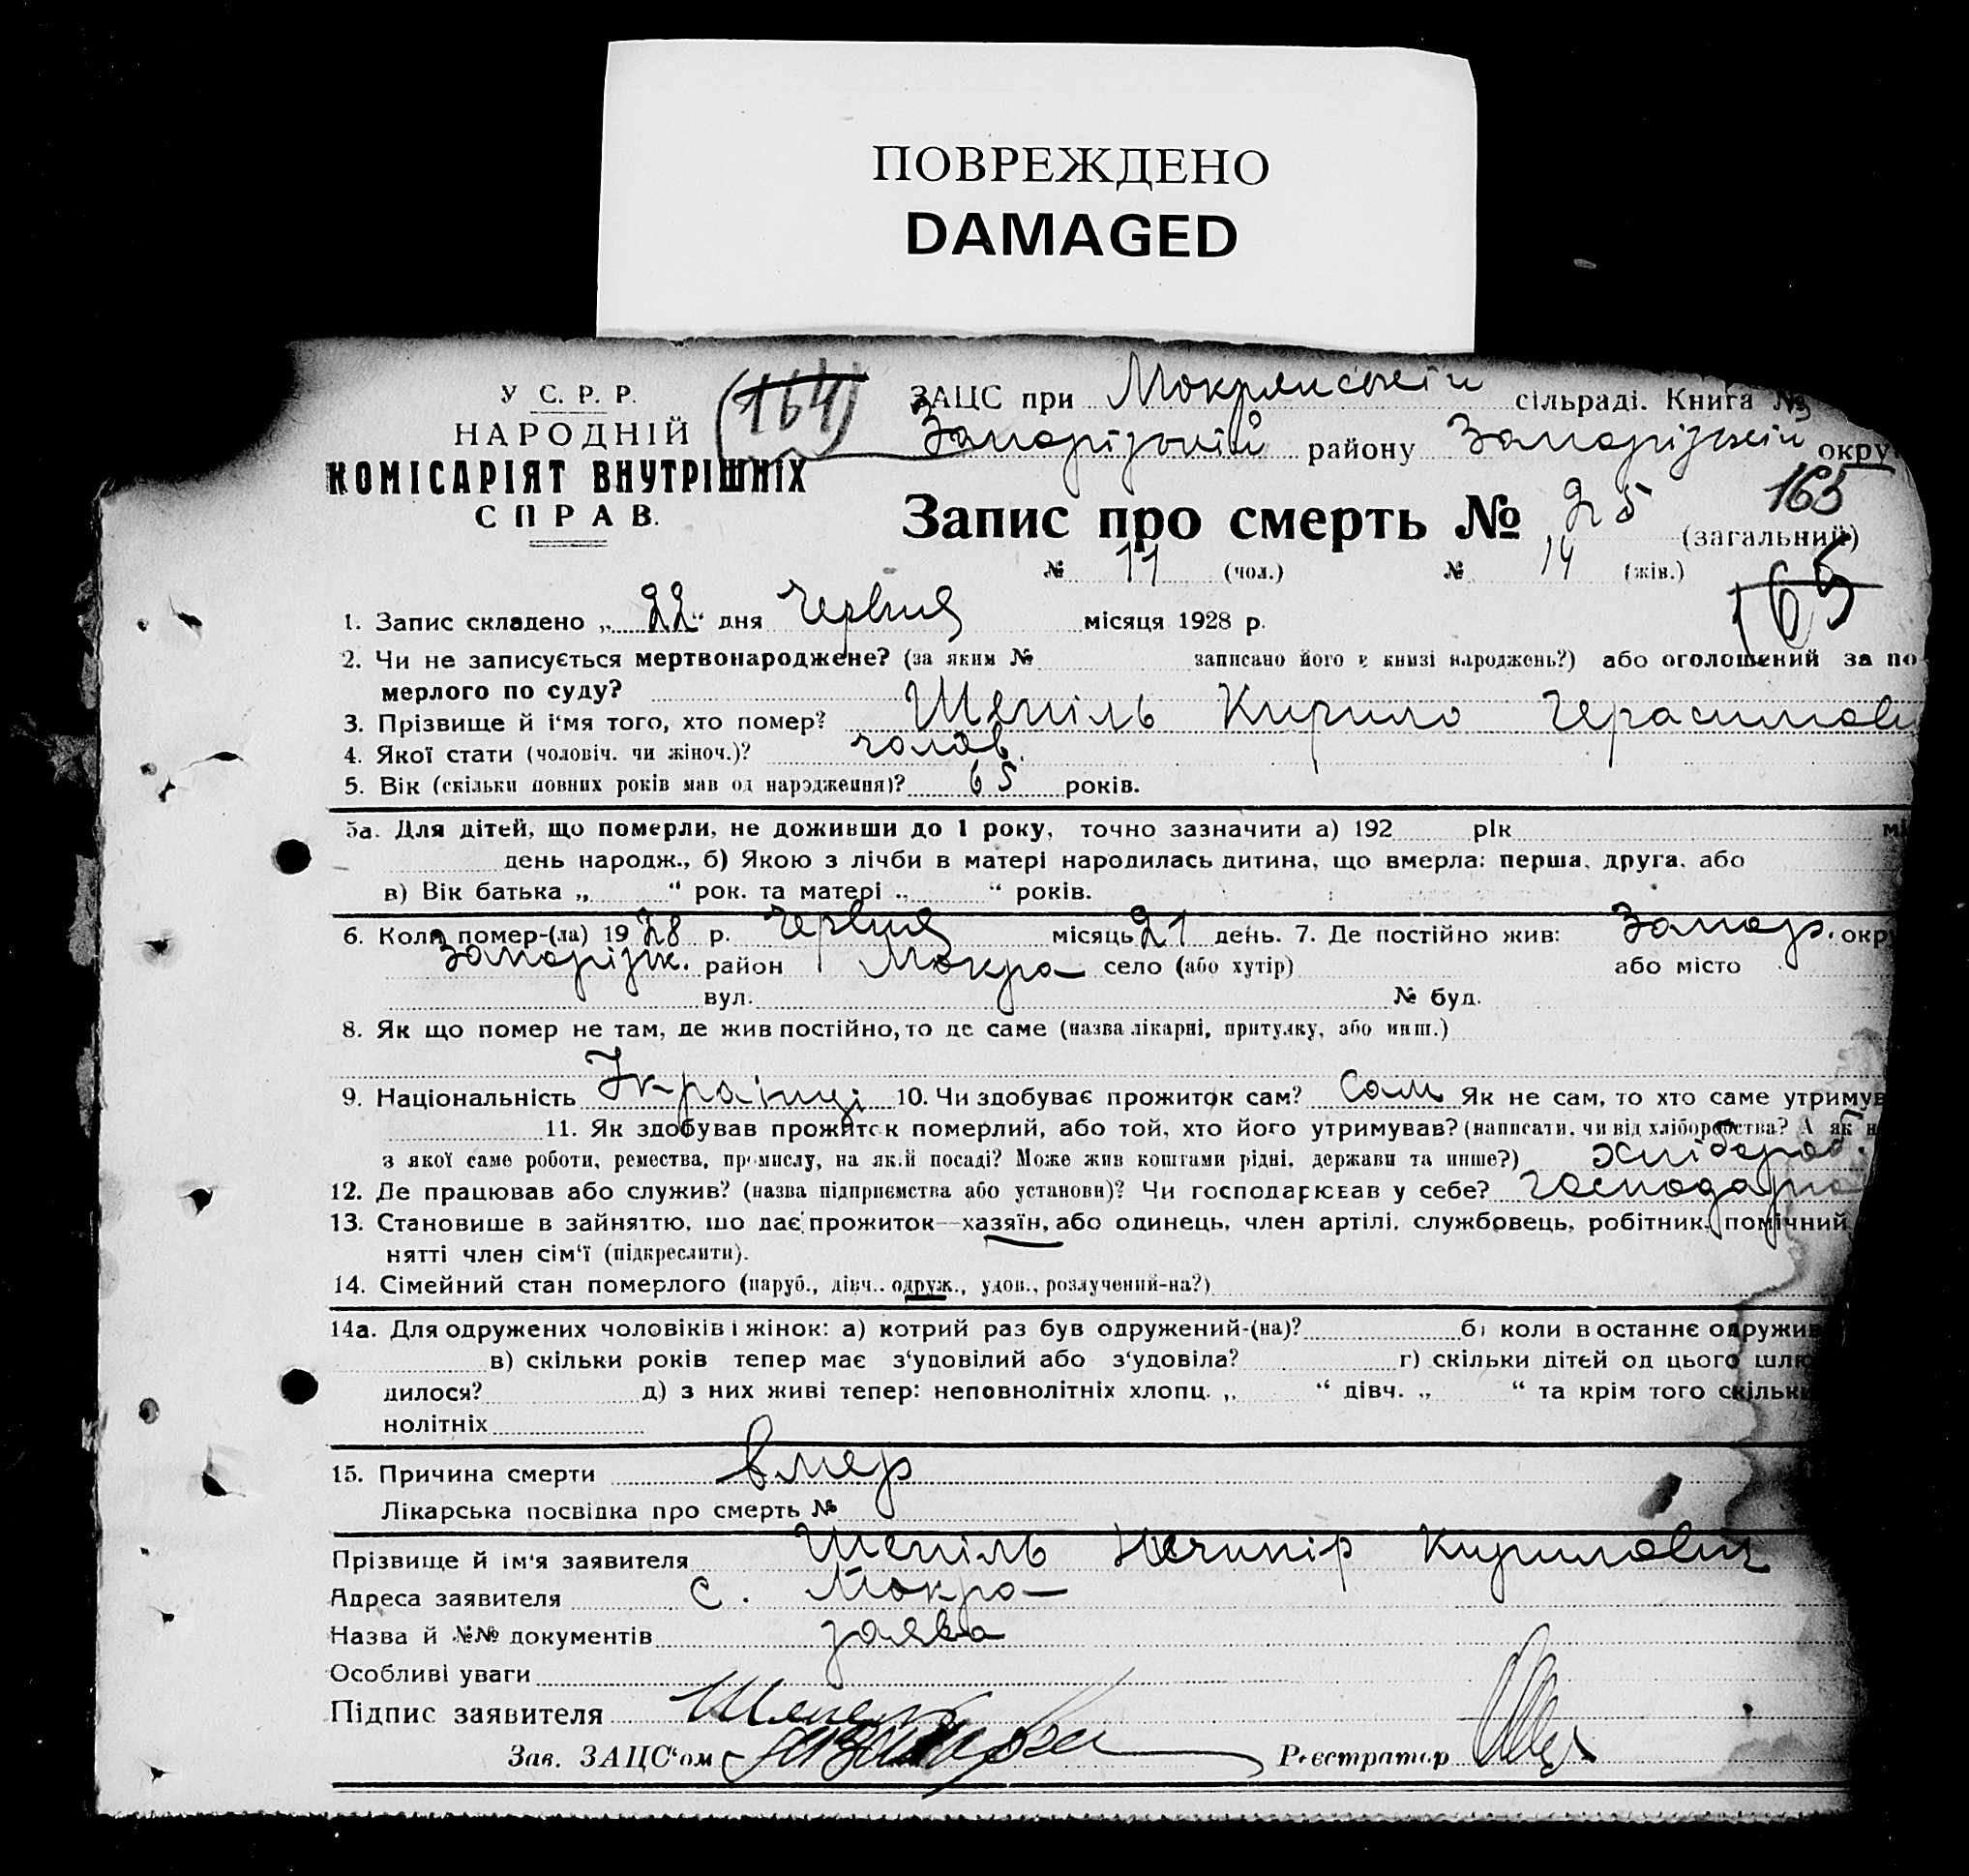 ПОВРЕЖДЕНО
DAMAGED
У С. Р. Р.
НАРОДНІЙ
КОМІСАРІЯТ ВНУТРІШНІХ
СПРАВ.
(164)
ЗАЦС при Мокрянській сільраді. Книга №
Запорізькій району Запорізькій окру
Запис про смерть № 25 (загальний)
163
№ 11 (чол.) № 14 (жін.)
165
1. Запис складено „22“ дня Червня місяця 1928 р.
2. Чи не записується мертвонароджене? (за яким № записано його в книзі народжень?) або оголошений за по
мерлого по суду?
3. Прізвище й і'мя того, хто помер? Шепіль Кирило Герасимови
4. Якої стати (чоловіч. чи жіноч.)? чолов.
5. Вік (скільки повних років мав од народження)? 65 років.
5а. Для дітей, що померли, не доживши до 1 року, точно зазначити а) 192 рік мі
день народж., б) Якою з лічби в матері народилась дитина, що вмерла: перша, друга, або
в) Вік батька „ “ рок. та матері „ “ років.
6. Коли помер-(ла) 1928 р. Червня місяць 21 день. 7. Де постійно жив: Запор. окр
Запорізк. район Мокра село (або хутір) або місто
вул. № буд.
8. Як що помер не там, де жив постійно, то де саме (назва лікарні, притулку, або инш.)
9. Національність Українці 10. Чи здобуває прожиток сам? Сам Як не сам, то хто саме утримув
11. Як здобував прожиток померлий, або той, хто його утримував? (написати, чи від хліборобства? А як н
з якої саме роботи, ремества, промислу, на якій посаді? Може жив коштами рідні, держави та инше?) хлібороб.
12. Де працював або служив? (назва підприємства або установи)? Чи господарював у себе? господарю
13. Становише в зайняттю, що дає прожиток—хазяїн, або одинець, член артілі, службовець, робітник, помічний
нятті член сім'ї (підкреслити).
14. Сімейний стан померлого (паруб., дівч., одруж., удов., розлучений-на?)
14а. Для одружених чоловіків і жінок: а) котрий раз був одружений-(на)? б) коли в останнє одружив
в) скільки років тепер має з'удовілий або з'удовіла? г) скільки дітей од цього шлю
дилося? д) з них живі тепер: неповнолітніх хлопц. „ “ дівч. „ “ та крім того скільки
нолітніх
15. Причина смерти вмер
Лікарська посвідка про смерть №
Прізвище й ім'я заявителя Шепіль Нечипір Кирилович
Адреса заявителя с. Мокра
Назва й №№ документів заява
Особливі уваги
Підпис заявителя
Зав. ЗАЦС'ом Реєстратор